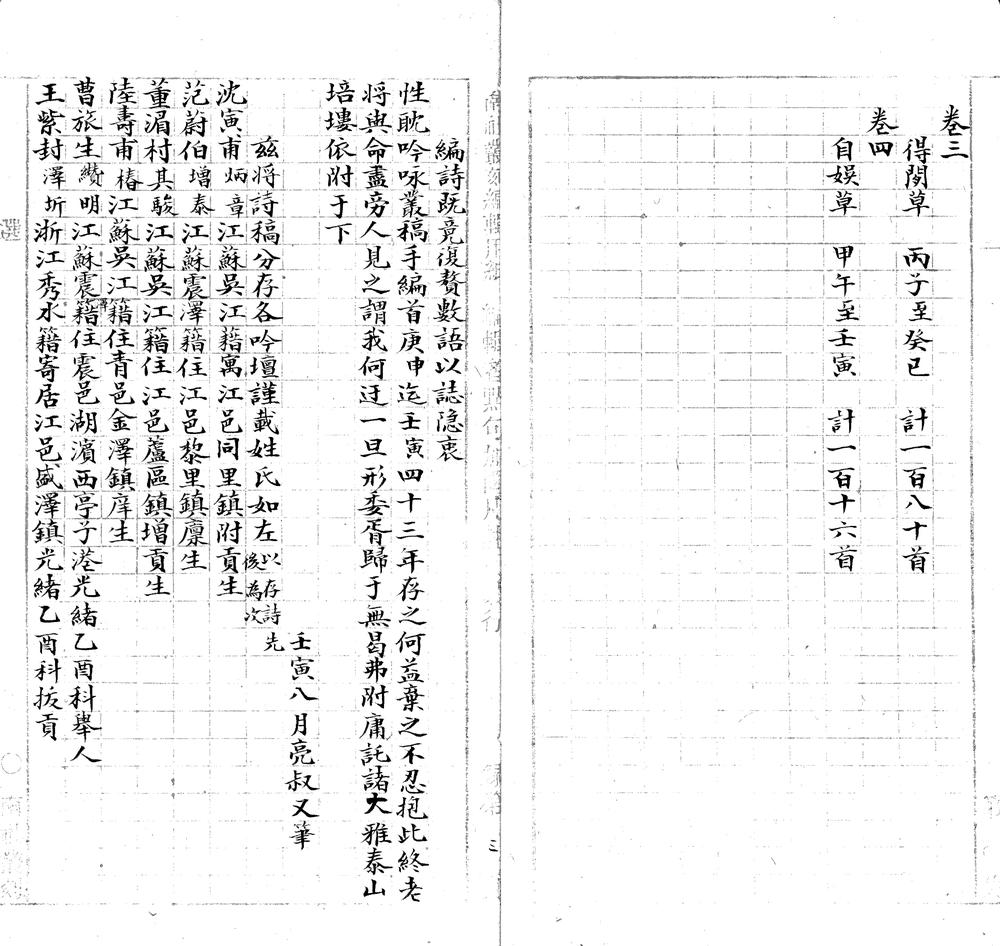 卷三
得閒草 丙子至癸巳 計一百八十首
卷四
自娛草 甲午至壬寅 計一百十六首
編詩既竟復贅數語以誌隱衷
性耽吟咏叢稿手編首庚申迄壬寅四十三年存之何益棄之不忍抱此終老
將與命盡旁人見之謂我何迂一旦形委胥歸于無曷弗附庸託諸大雅泰山
培塿依附于下
壬寅八月亮叔又筆
茲將詩稿分存各吟壇謹載姓氏如左以存詩先後為次
沈寅甫炳章江蘇吳江籍寓江邑同里鎮附貢生
范蔚伯增泰江蘇震澤籍住江邑黎里鎮廩生
董湄村其駿江蘇吳江籍住江邑蘆區鎮增貢生
陸壽甫椿江蘇吳江籍住青邑金澤鎮庠生
曹旅生纘明江蘇震澤籍住震邑湖濱西亭子港光緒乙酉科舉人
王紫封澤圻浙江秀水籍寄居江邑盛澤鎮光緒乙酉科拔貢
三
選